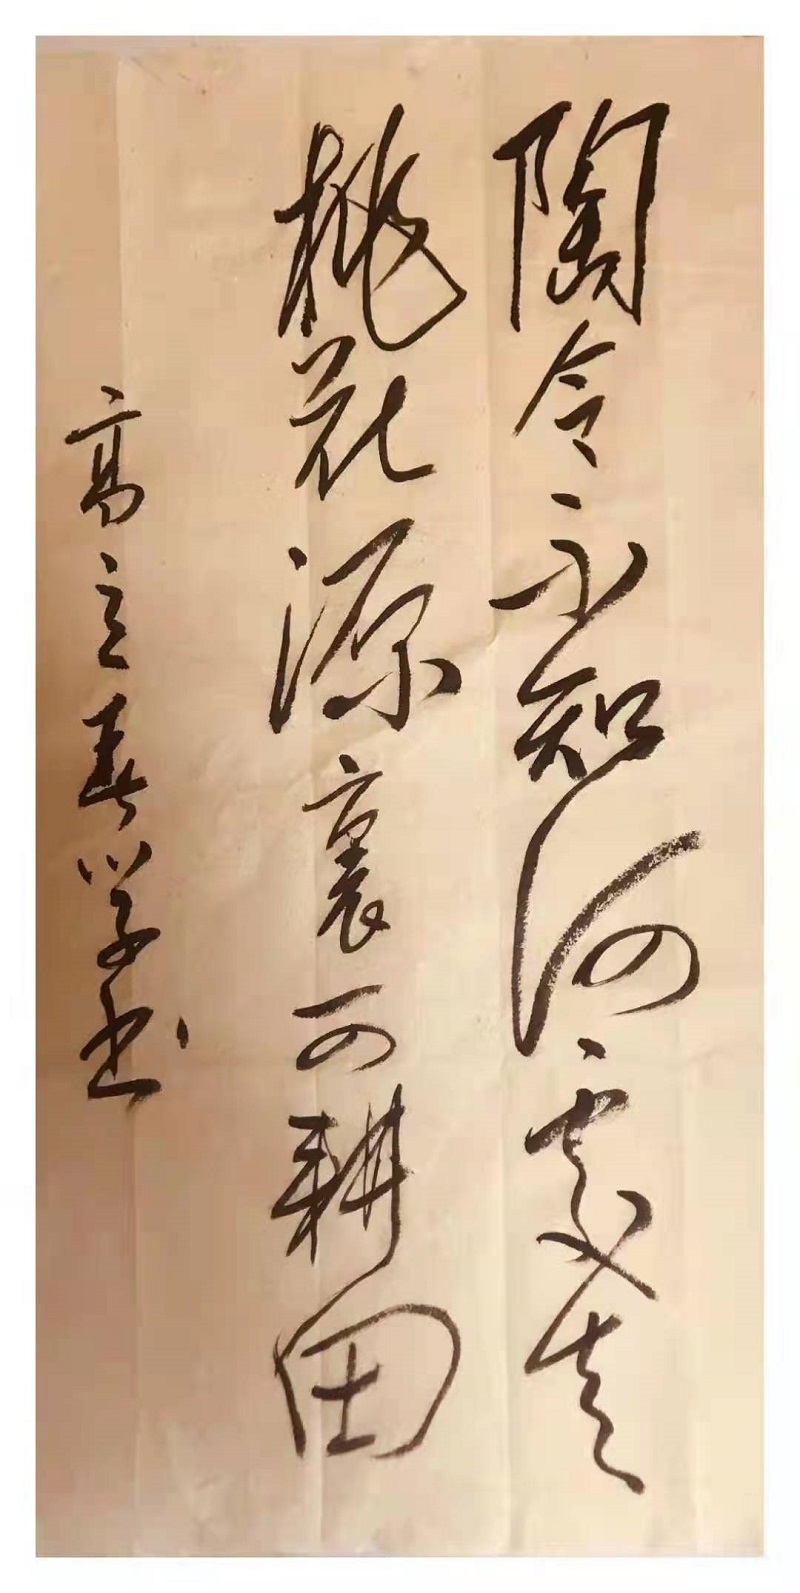 陶令不知何處去
桃花源裏可耕田
高立春学书